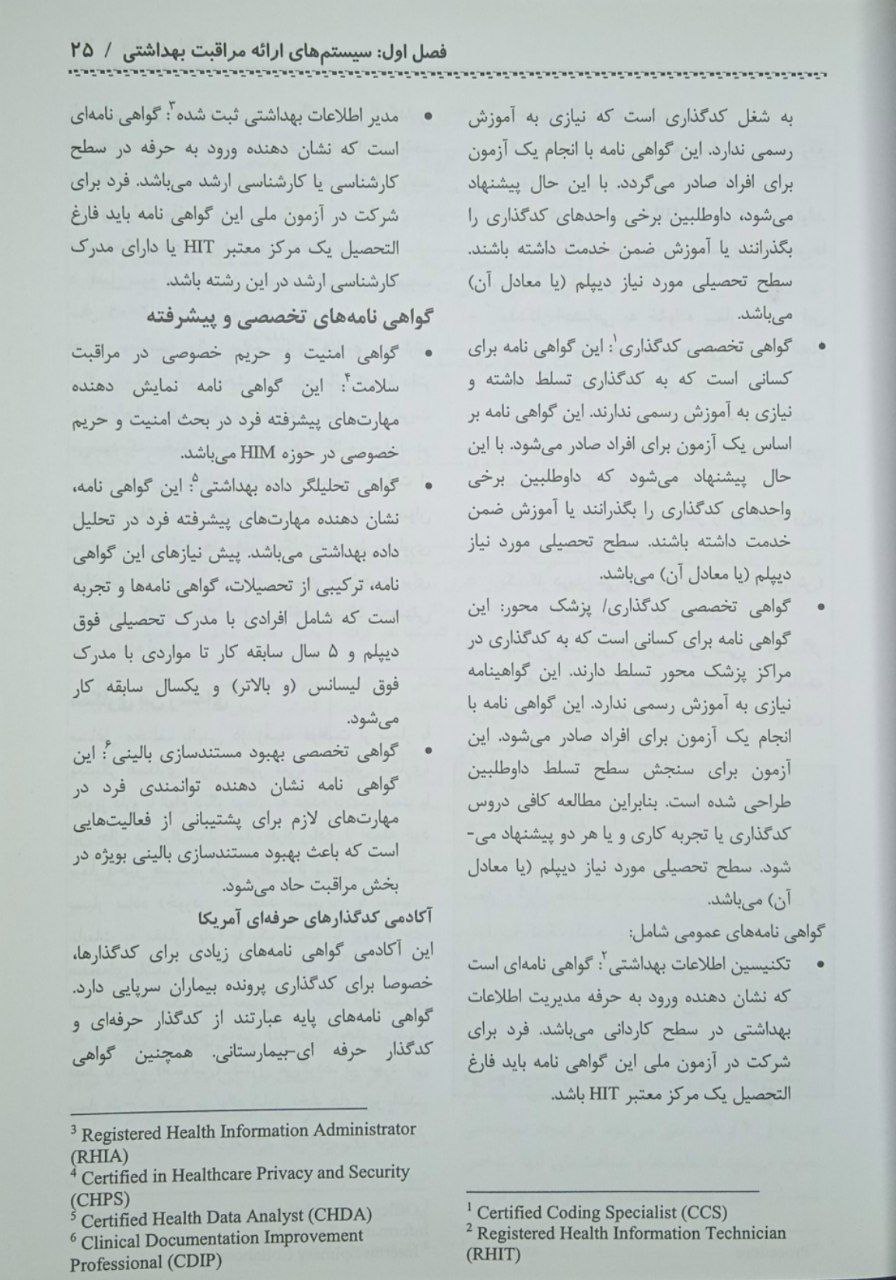 فصل اول: سیستم‌های ارائه مراقبت بهداشتی / ۲۵
به شغل کدگذاری است که نیازی به آموزش
رسمی ندارد. این گواهی نامه با انجام یک آزمون
برای افراد صادر می‌گردد. با این حال پیشنهاد
می‌شود، داوطلبین برخی واحدهای کدگذاری را
بگذرانند یا آموزش ضمن خدمت داشته باشند.
سطح تحصیلی مورد نیاز دیپلم (یا معادل آن)
می‌باشد.
• گواهی تخصصی کدگذاری۱: این گواهی نامه برای
کسانی است که به کدگذاری تسلط داشته و
نیازی به آموزش رسمی ندارند. این گواهی نامه بر
اساس یک آزمون برای افراد صادر می‌شود. با این
حال پیشنهاد می‌شود که داوطلبین برخی
واحدهای کدگذاری را بگذرانند یا آموزش ضمن
خدمت داشته باشند. سطح تحصیلی مورد نیاز
دیپلم (یا معادل آن) می‌باشد.
• گواهی تخصصی کدگذاری/ پزشک محور: این
گواهی نامه برای کسانی است که به کدگذاری در
مراکز پزشک محور تسلط دارند. این گواهینامه
نیازی به آموزش رسمی ندارد. این گواهی نامه با
انجام یک آزمون برای افراد صادر می‌شود. این
آزمون برای سنجش سطح تسلط داوطلبین
طراحی شده است. بنابراین مطالعه کافی دروس
کدگذاری یا تجربه کاری و یا هر دو پیشنهاد می-
شود. سطح تحصیلی مورد نیاز دیپلم (یا معادل
آن) می‌باشد.
گواهی نامه‌های عمومی شامل:
• تکنیسین اطلاعات بهداشتی۲: گواهی نامه‌ای است
که نشان دهنده ورود به حرفه مدیریت اطلاعات
بهداشتی در سطح کاردانی می‌باشد. فرد برای
شرکت در آزمون ملی این گواهی نامه باید فارغ
التحصیل یک مرکز معتبر HIT باشد.
1 Certified Coding Specialist (CCS)
2 Registered Health Information Technician
(RHIT)
• مدیر اطلاعات بهداشتی ثبت شده۳: گواهی نامه‌ای
است که نشان دهنده ورود به حرفه در سطح
کارشناسی یا کارشناسی ارشد می‌باشد. فرد برای
شرکت در آزمون ملی این گواهی نامه باید فارغ
التحصیل یک مرکز معتبر HIT یا دارای مدرک
کارشناسی ارشد در این رشته باشد.
گواهی نامه‌های تخصصی و پیشرفته
• گواهی امنیت و حریم خصوصی در مراقبت
سلامت۴: این گواهی نامه نمایش دهنده
مهارت‌های پیشرفته فرد در بحث امنیت و حریم
خصوصی در حوزه HIM می‌باشد.
• گواهی تحلیلگر داده بهداشتی۵: این گواهی نامه،
نشان دهنده مهارت‌های پیشرفته فرد در تحلیل
داده بهداشتی می‌باشد. پیش نیازهای این گواهی
نامه، ترکیبی از تحصیلات، گواهی نامه‌ها و تجربه
است که شامل افرادی با مدرک تحصیلی فوق
دیپلم و ۵ سال سابقه کار تا مواردی با مدرک
فوق لیسانس (و بالاتر) و یکسال سابقه کار
می‌شود.
• گواهی تخصصی بهبود مستندسازی بالینی۶: این
گواهی نامه نشان دهنده توانمندی فرد در
مهارت‌های لازم برای پشتیبانی از فعالیت‌هایی
است که باعث بهبود مستندسازی بالینی بویژه در
بخش مراقبت حاد می‌شود.
آکادمی کدگذارهای حرفه‌ای آمریکا
این آکادمی گواهی نامه‌های زیادی برای کدگذارها،
خصوصا برای کدگذاری پرونده بیماران سرپایی دارد.
گواهی نامه‌های پایه عبارتند از کدگذار حرفه‌ای و
کدگذار حرفه ای-بیمارستانی. همچنین گواهی
3 Registered Health Information Administrator
(RHIA)
4 Certified in Healthcare Privacy and Security
(CHPS)
5 Certified Health Data Analyst (CHDA)
6 Clinical Documentation Improvement
Professional (CDIP)